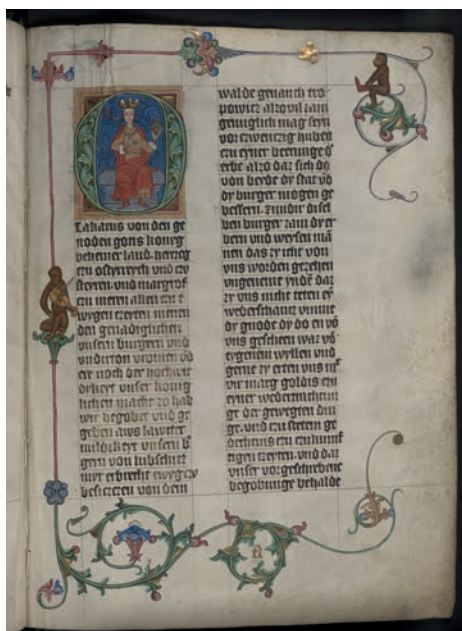 Otakarus von den ge
noden gotis konyg
behemer land. herczog
czu ostyrrych vnd czu
steyren vnd margrof
czu meren allen czu e
wygen czeyten meren
den genadiglichen
vnsern burgern vnd
vndirton vromen vd
ere noch der hochwir
dykeyt vnser konig
lichen macht zo hab
wir begobet vnd ge
geben aws lawter
mildikeyt vnsern b
gern von lubschicz
myt erbrecht ewyger
besiczen von dem
walde genant tro
powicz alzo vil ram
genuglich mag seyn
vor czwenczig huben
czu eyner besserunge d
erbe alzo daz sich do
von beyde dy stat vd
dy burger mogen ge
bessern. zundir disel
ben burger ram dy er
bern vnd weysen ma
nen das zy icht von
vns worden gezehen
vngeneme ynde daz
zy vns nicht teten ey
wederschancz vmme
dy gnode dy do en vo
vns gescheen waz vo
eygenem wyllen vnd
gerne zy erten vns mt
vir marg goldis czu
eyner wedermechenu
ge der gewegten din
ge. vnd czu stetem ge
dechenis czu czukunf
tigen czeyten. vnd daz
vnser vorgeschrebene
begobunge behalde